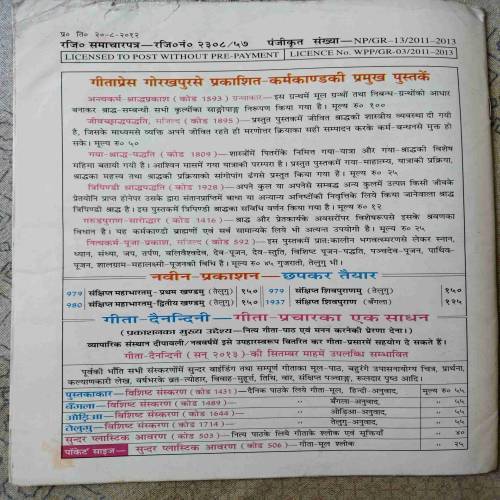 प्र० ति० २०-८-२०१२
रजि० समाचारपत्र—रजि०नं० २३०८/५७ पंजीकृत संख्या—NP/GR-13/2011-2013
LICENSED TO POST WITHOUT PRE-PAYMENT LICENCE No. WPP/GR-03/2011-2013
गीताप्रेस गोरखपुरसे प्रकाशित-कर्मकाण्डकी प्रमुख पुस्तकें
अन्त्यकर्म-श्राद्धप्रकाश (कोड 1593) ग्रन्थाकार—इस ग्रन्थमें मूल ग्रन्थों तथा निबन्ध-ग्रन्थोंको आधार
बनाकर श्राद्ध-सम्बन्धी सभी कृत्योंका साङ्गोपाङ्ग निरूपण किया गया है। मूल्य रु० १००
जीवच्छ्राद्धपद्धति, सजिल्द (कोड 1895)—प्रस्तुत पुस्तकमें जीवित श्राद्धकी शास्त्रीय व्यवस्था दी गयी
है, जिसके माध्यमसे व्यक्ति अपने जीवित रहते ही मरणोत्तर क्रियाका सही सम्पादन करके कर्म-बन्धनसे मुक्त हो
सके। मूल्य रु० ५०
गया-श्राद्ध-पद्धति (कोड 1809)—शास्त्रोंमें पितरोंके निमित्त गया-यात्रा और गया-श्राद्धकी विशेष
महिमा बतायी गयी है। आश्विन मासमें गया यात्राकी परम्परा है। प्रस्तुत पुस्तकमें गया-माहात्म्य, यात्राकी प्रक्रिया,
श्राद्धका महत्त्व तथा श्राद्धकी प्रक्रियाको सांगोपांग ढंगसे प्रस्तुत किया गया है। मूल्य रु० २५
त्रिपिण्डी श्राद्धपद्धति (कोड 1928)—अपने कुल या अपनेसे सम्बद्ध अन्य कुलमें उत्पन्न किसी जीवके
प्रेतयोनि प्राप्त होनेपर उसके द्वारा संतानप्राप्तिमें बाधा या अन्यान्य अनिष्टोंकी निवृत्तिके लिये किया जानेवाला श्राद्ध
त्रिपिण्डी श्राद्ध है। इस पुस्तकमें त्रिपिण्डी श्राद्धका सविधि वर्णन किया गया है। मूल्य रु० १२
गरुडपुराण-सारोद्धार (कोड 1416)—श्राद्ध और प्रेतकार्यके अवसरोंपर विशेषरूपसे इसके श्रवणका
विधान है। यह कर्मकाण्डी ब्राह्मणों एवं सर्व सामान्यके लिये भी अत्यन्त उपयोगी है। मूल्य रु० २५
नित्यकर्म-पूजा-प्रकाश, सजिल्द (कोड 592)—इस पुस्तकमें प्रातःकालीन भगवत्स्मरणसे लेकर स्नान,
ध्यान, संध्या, जप, तर्पण, बलिवैश्वदेव, देव-पूजन, देव-स्तुति, विशिष्ट पूजन-पद्धति, पञ्चदेव-पूजन, पार्थिव-
पूजन, शालग्राम-महालक्ष्मी-पूजनकी विधि है। मूल्य रु० ४५ गुजराती, तेलुगु भी।
नवीन-प्रकाशन—छपकर तैयार
979 संक्षिप्त महाभारतम्-प्रथम खण्डम् (तेलुगु) १५० 979 संक्षिप्त शिवपुराणम् (तेलुगु) १५०
980 संक्षिप्त महाभारतम्-द्वितीय खण्डम् (तेलुगु) १५० 1937 संक्षिप्त शिवपुराण (बँगला) १२५
गीता-दैनन्दिनी—गीता-प्रचारका एक साधन
(प्रकाशनका मुख्य उद्देश्य—नित्य गीता-पाठ एवं मनन करनेकी प्रेरणा देना।)
व्यापारिक संस्थान दीपावली/नववर्षमें इसे उपहारस्वरूप वितरित कर गीता-प्रसारमें सहयोग दे सकते हैं।
गीता-दैनन्दिनी (सन् २०१३)-की सितम्बर माहमें उपलब्धि सम्भावित
पूर्वकी भाँति सभी संस्करणोंमें सुन्दर बाईंडिंग तथा सम्पूर्ण गीताका मूल-पाठ, बहुरंगे उपासनायोग्य चित्र, प्रार्थना,
कल्याणकारी लेख, वर्षभरके व्रत-त्योहार, विवाह-मुहूर्त्त, तिथि, वार, संक्षिप्त पञ्चाङ्ग, रूलदार पृष्ठ आदि।
पुस्तकाकार—विशिष्ट संस्करण (कोड 1431)—दैनिक पाठके लिये गीता-मूल, हिन्दी-अनुवाद, मूल्य रु० ५५
बँगला—विशिष्ट संस्करण (कोड 1489)— " बँगला-अनुवाद, " ५५
ओड़िआ—विशिष्ट संस्करण (कोड 1644)— " ओड़िआ-अनुवाद, " ५५
तेलुगु—विशिष्ट संस्करण (कोड 1714)— " तेलुगु-अनुवाद, " ५५
सुन्दर प्लास्टिक आवरण (कोड 503)—नित्य पाठके लिये गीताके श्लोक एवं सूक्तियाँ " ४०
पॉकेट साइज— सुन्दर प्लास्टिक आवरण (कोड 506)—गीता-मूल श्लोक " २५